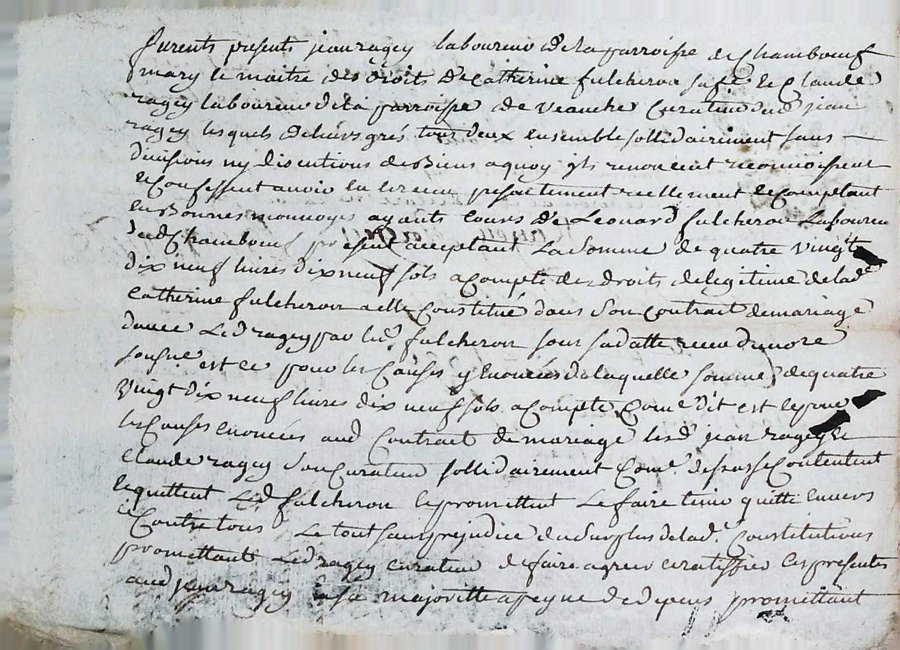 furents presents jean ragey laboureur de la parroisse de Chambœuf
mary le maitre des droit de Catherine fulcheron sa fe. & Claude
ragey laboureur de la parroisse de veauche Curateur dud jean
ragey lesquels de leurs grés tous deux ensemble sollidairement sans
divisions ny discutions de Biens a quoy yls renoncent reconnoissent
& Confessent avoir eu & receu presentement reellement & comptant
en Bonnes monnoyes ayants cours de Leonard fulcheron Laboureur
dud Chambœuf present acceptant La somme de quatre vingt
dix neuf livres dix neuf sols a Compte des droits de legitime de lad
Catherine fulcheron a elle Constitué dans son contrait de mariage
avec Led ragey par led fulcheron sous sa datte receu du nore
soigné est ce pour les Causes y Enoncées de laquelle somme de quatre
vingt dix neuf livres dix neuf sols a Compte Come dit est & pour
les Causes enoncées aud Contrait de mariage lesd jean ragey &
Claude ragey son Curateur sollidairement Come dessus se Contentent
& quittent Led fulcheron & promettent Le faire tenir quitte envers
& Contre tous Le tout sans prejudice du surplus de lad. Constitutions
promettant Led ragey curateur de faire agreer & ratiffier ces presentes
aud jean ragey a sa majoritte a peyne de depens promettant